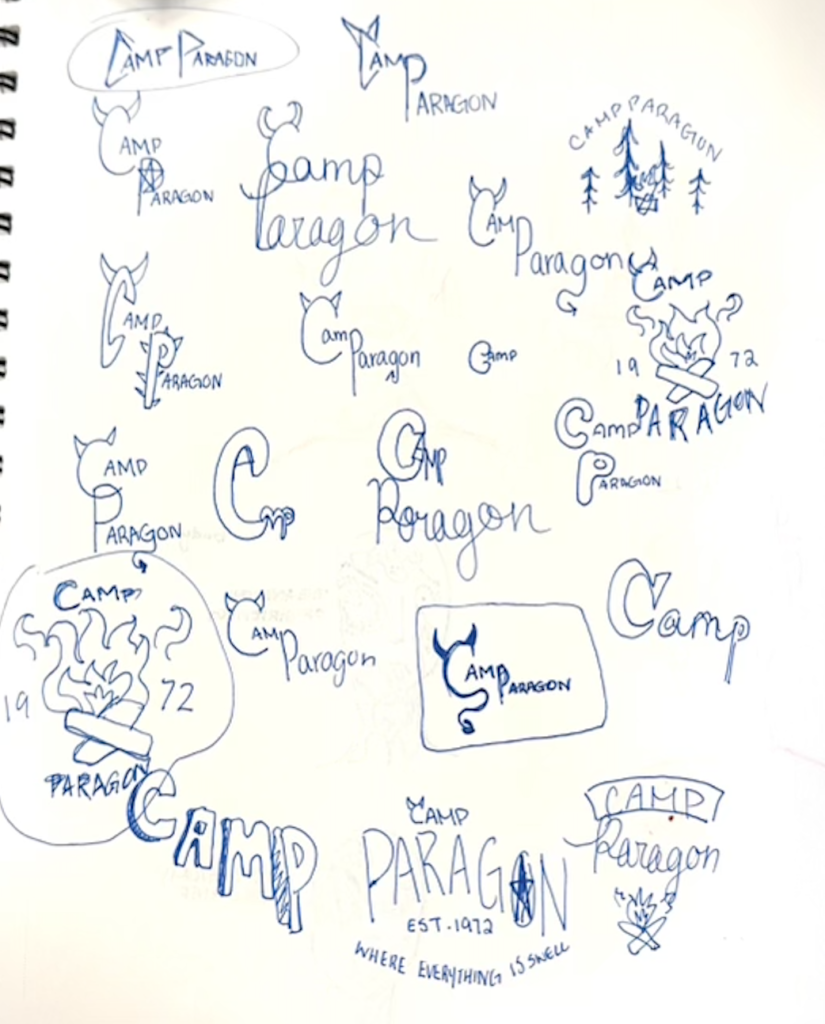 CAMP PARAGON
CAMP
PARAGON
CAMP
PARAGON
Camp
Paragon
CAMP PARAGON
CAMP
Paragon
CAMP
PARAGON
Camp
Paragon
CAMP
CAMP
19 72
PARAGON
CAMP
PARAGON
CAMP
PARAGON
Camp
Camp
Paragon
CAMP
19 72
PARAGON
CAMP
Paragon
CAMP
PARAGON
Camp
CAMP
CAMP
PARAGON
EST. 1972
WHERE EVERYTHING IS SWELL
CAMP
Paragon